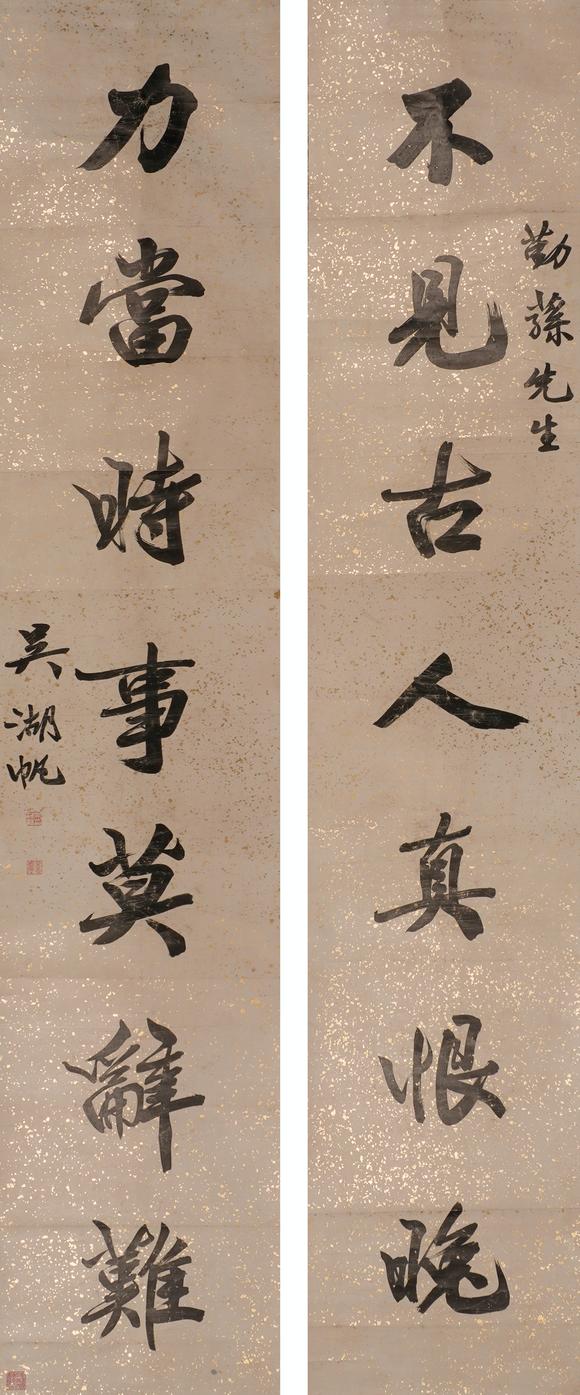 勤蓀先生
不見古人真恨晚
力當時事莫辭難
吳湖帆